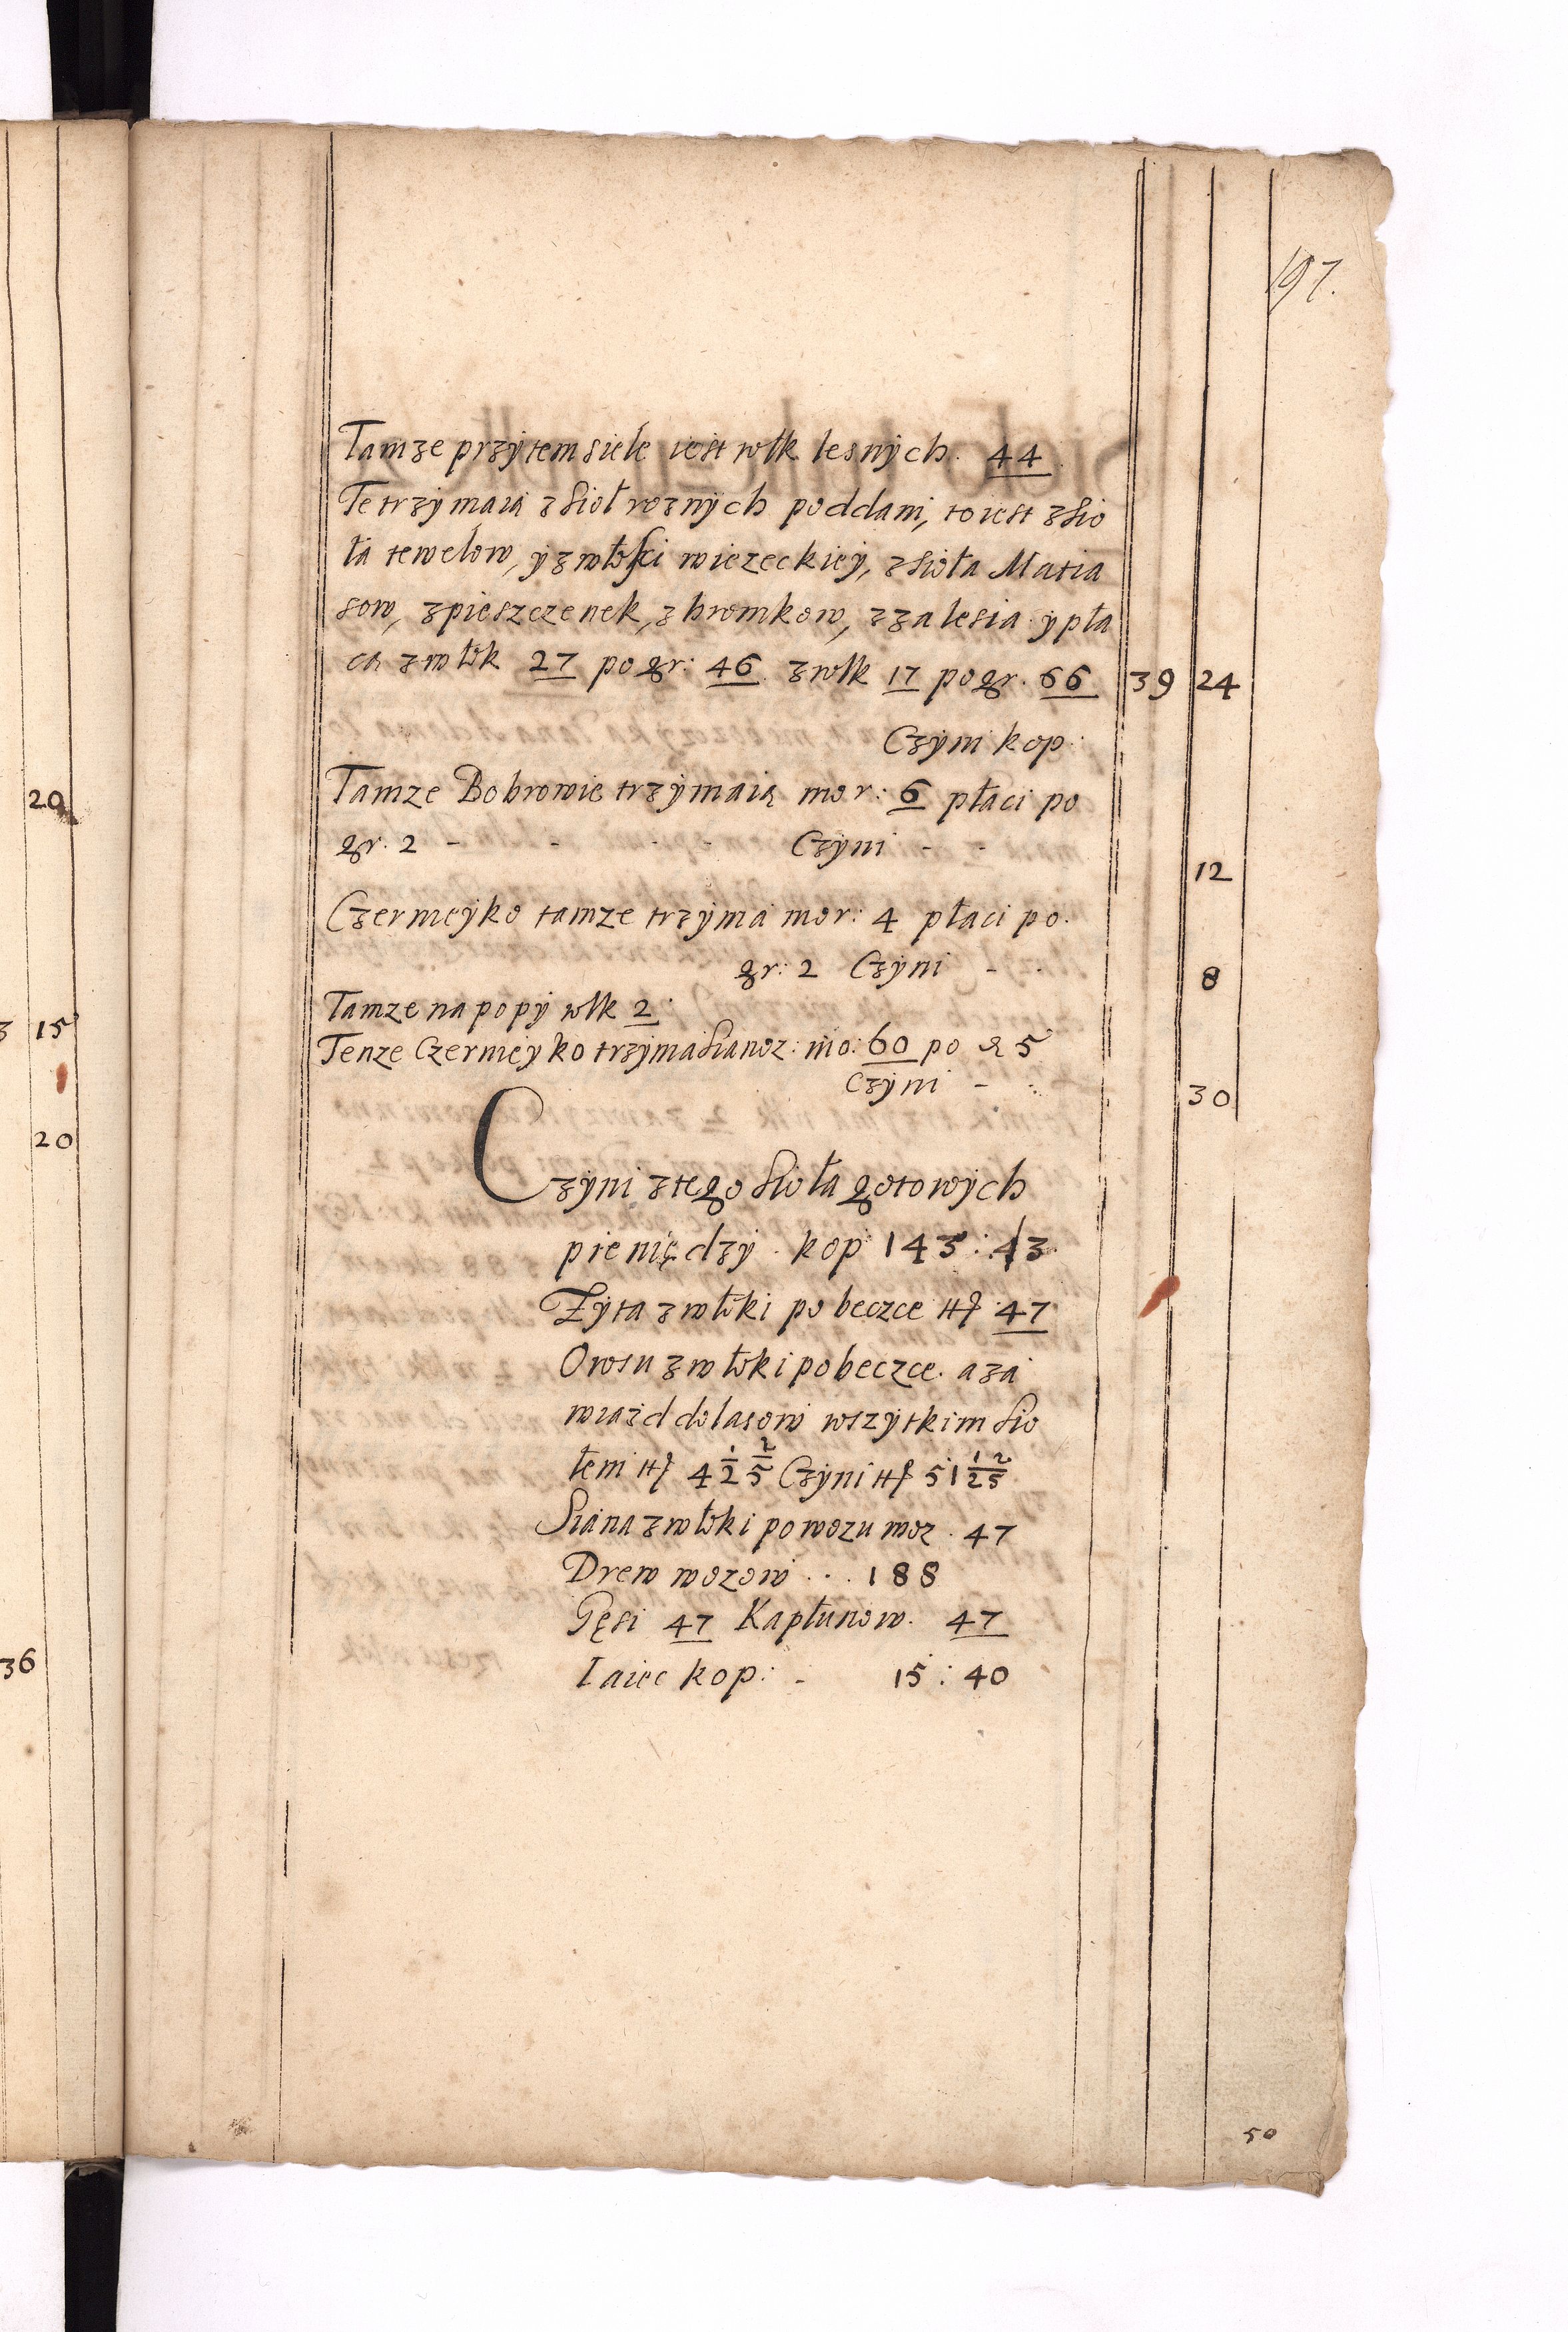 197.
Tamze przytem siele iest włk lesnych. 44
Te trzymaią z sioł roznych poddani, to iest z sio
ła tewelow, y z włoki wiezeckiey, z sioła Matia
sow, z pieszczenek, z hromkow, z zalesia y pła
cą z włok 27 po gr: 46 z włk 17 po gr. 66 39 24
Czyni kop:
Tamze Bobrowie trzymaią mor: 6 płaci po
gr. 2 - - - - Czyni - - 12
Czermeyko tamze trzyma mor: 4 płaci po.
gr: 2 Czyni - - 8
Tamze na popy włk 2.
Tenze Czermeyko trzyma sianoz: mo: 60 po 5
Czyni - : 30
Czyni z tego sioła gotowych
pieniędzy. kop 143:43
Zyta z włoki po beczce 47
Owsu z włoki po beczce. a za
wiazd dolasow wszytkim sio
łem 4 1/2 2/5 Czyni 51 1/2 2/5
Siana z włoki po wozu woz. 47
Drew wozow ... 188
Gęsi 47 Kapłunow. 47
Iaiec kop: - 15:40
50
20
15
20
36